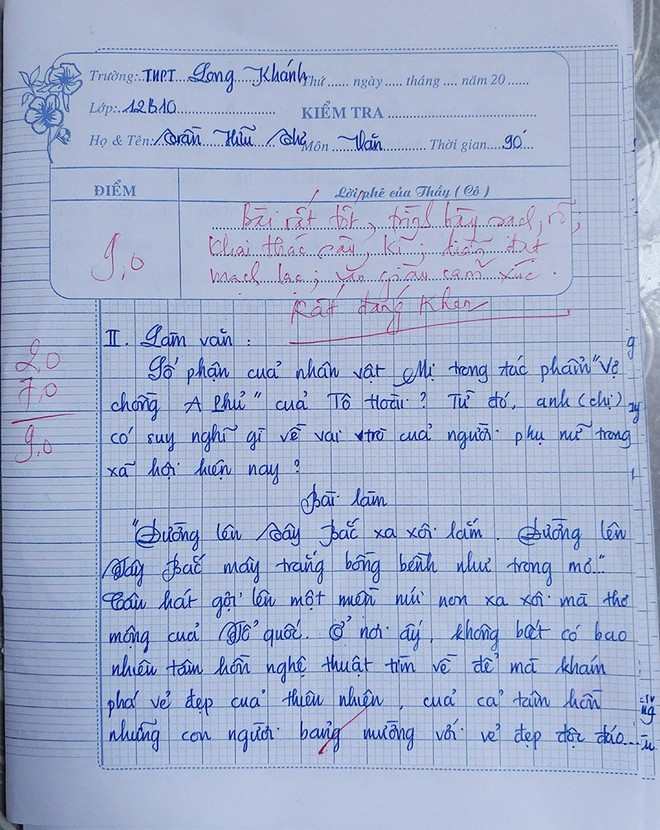 Trường: THPT Long Khánh Thứ ...... ngày ...... tháng .... năm 20 ......
Lớp: 12B10 KIỂM TRA
Họ & Tên: Trần Hữu Môn Văn Thời gian 90'
ĐIỂM Lời phê của Thầy ( Cô )
9,0
Bài rất tốt, trình bày sạch, rõ;
Khai thác sâu, kĩ; diễn đạt
mạch lạc; văn giàu cảm xúc.
Rất đáng khen
2,0
7,0
9,0
II. Làm văn :
Số phận cuả nhân vật Mị trong tác phẩm "Vợ
chồng A Phủ" cuả Tô Hoài ? Từ đó, anh (chị)
có suy nghĩ gì về vai trò cuả người phụ nữ trong
xã hội hiện nay ?
Bài làm
"Đường lên Tây Bắc xa xôi lắm. Đường lên
Tây Bắc mây trắng bồng bềnh như trong mơ..."
Câu hát gợi lên một miền núi non xa xôi mà thơ
mộng cuả Tổ quốc. Ở nơi ấy, không biết có bao
nhiêu tâm hồn nghệ thuật tìm về để mà khám
phá vẻ đẹp cuả thiên nhiên, cuả cả tâm hồn
những con người bảng mường với vẻ đẹp độc đáo...